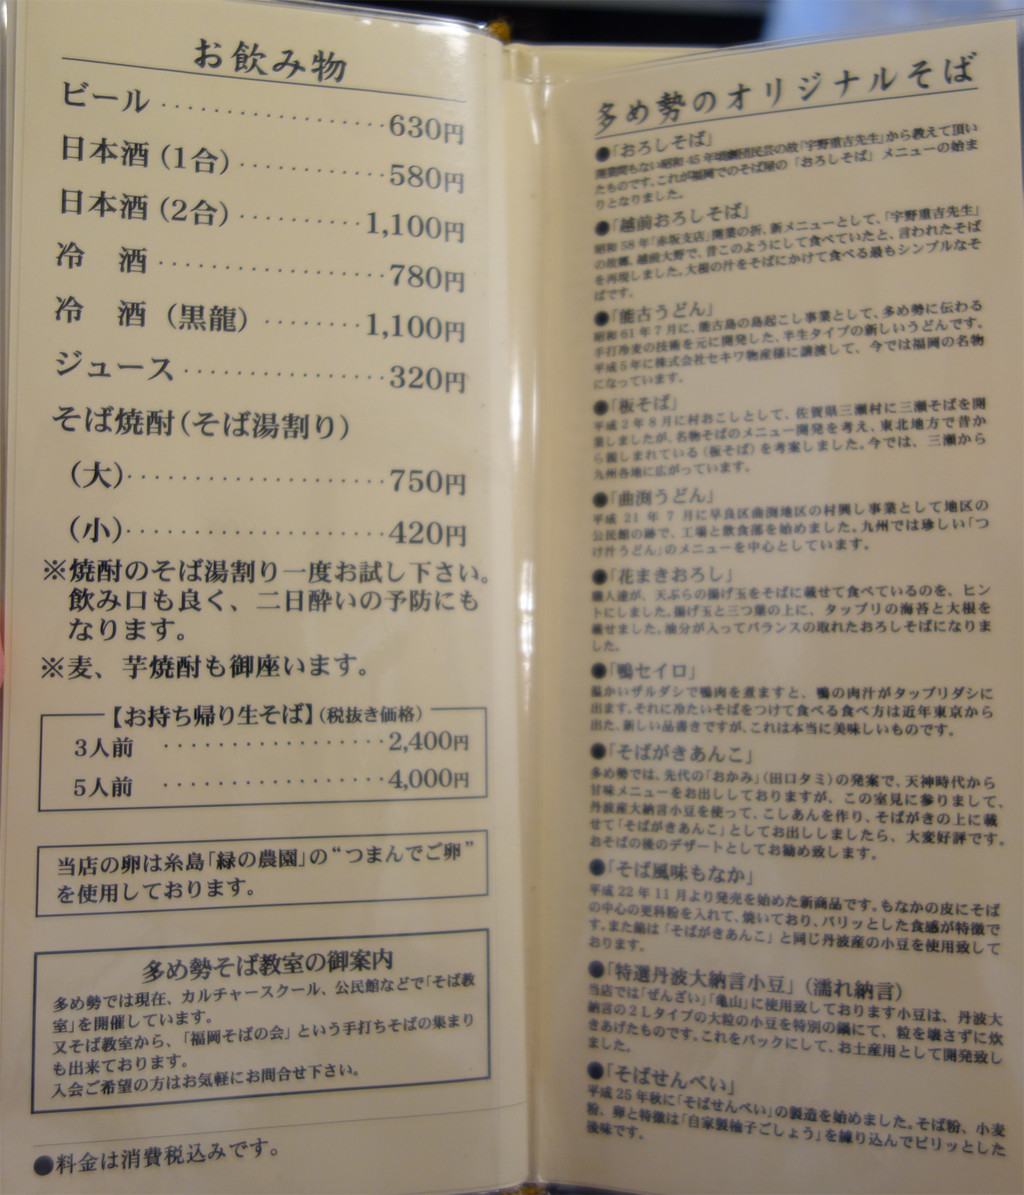 お飲み物
ビール‥‥‥‥‥‥‥‥630円
日本酒(1合)‥‥‥‥‥580円
日本酒(2合)‥‥‥‥‥1,100円
冷　酒‥‥‥‥‥‥‥‥780円
冷　酒(黒龍)‥‥‥‥1,100円
ジュース‥‥‥‥‥‥‥320円
そば焼酎(そば湯割り)
(大)‥‥‥‥‥‥‥‥‥750円
(小)‥‥‥‥‥‥‥‥‥420円
※焼酎のそば湯割り一度お試し下さい。
飲み口も良く、二日酔いの予防にも
なります。
※麦、芋焼酎も御座います。
【お持ち帰り生そば】(税抜き価格)
3人前‥‥‥‥‥‥‥‥2,400円
5人前‥‥‥‥‥‥‥‥4,000円
当店の卵は糸島「緑の農園」の“つまんでご卵”
を使用しております。
多め勢そば教室の御案内
多め勢では現在、カルチャースクール、公民館などで「そば教
室」を開催しています。
又そば教室から、「福岡そばの会」という手打ちそばの集まり
も出来ております。
入会ご希望の方はお気軽にお問合せ下さい。
●料金は消費税込みです。
多め勢のオリジナルそば
●「おろしそば」
開業間もない昭和45年頃劇団民芸の故「宇野重吉先生」から教えて頂い
たものです。これが福岡でのそば屋の「おろしそば」メニューの始ま
りとなりました。
●「越前おろしそば」
昭和58年「赤坂支店」開業の折、新メニューとして、「宇野重吉先生」
の故郷、越前大野で、昔このようにして食べていたと、言われたそば
を再現しました。大根の汁をそばにかけて食べる最もシンプルなそ
ばです。
●「能古うどん」
昭和61年7月に、能古島の島起こし事業として、多め勢に伝わる
手打冷麦の技術を元に開発した、半生タイプの新しいうどんです。
平成5年に株式会社セキワ物産様に譲渡して、今では福岡の名物
になっています。
●「板そば」
平成2年8月に村おこしとして、佐賀県三瀬村に三瀬そばを開
業しましたが、名物そばのメニュー開発を考え、東北地方で昔か
ら親しまれている(板そば)を考案しました。今では、三瀬から
九州各地に広がっています。
●「曲渕うどん」
平成21年7月に早良区曲渕地区の村興し事業として地区の
公民館の跡で、工場と飲食部を始めました。九州では珍しい「つ
け汁うどん」のメニューを中心としています。
●「花まきおろし」
職人達が、天ぷらの揚げ玉をそばに載せて食べているのを、ヒン
トにしました。揚げ玉と三つ葉の上に、タップリの海苔と大根を
載せました。油分が入ってバランスの取れたおろしそばになりま
した。
●「鴨セイロ」
温かいザルダシで鴨肉を煮ますと、鴨の肉汁がタップリダシに
出ます。それに冷たいそばをつけて食べる食べ方は近年東京から
出た、新しい品書きですが、これは本当に美味しいものです。
●「そばがきあんこ」
多め勢では、先代の「おかみ」(田口タミ)の発案で、天神時代から
甘味メニューをお出ししておりますが、この室見に参りまして、
丹波産大納言小豆を使って、こしあんを作り、そばがきの上に載
せて「そばがきあんこ」としてお出ししましたら、大変好評です。
おそばの後のデザートとしてお勧め致します。
●「そば風味もなか」
平成22年11月より発売を始めた新商品です。もなかの皮にそば
の中心の更科粉を入れて、焼いており、パリッとした食感が特徴で
す。また餡は「そばがきあんこ」と同じ丹波産の小豆を使用致して
おります。
●「特選丹波大納言小豆」(濡れ納言)
当店では「ぜんざい」「亀山」に使用致しております小豆は、丹波大
納言の2Lタイプの大粒の小豆を特別の鍋にて、粒を壊さずに炊
きあげたものです。これをパックにして、お土産用として開発致し
ました。
●「そばせんべい」
平成25年秋に「そばせんべい」の製造を始めました。そば粉、小麦
粉、卵と特徴は「自家製柚子ごしょう」を練り込んでピリッとした
後味です。